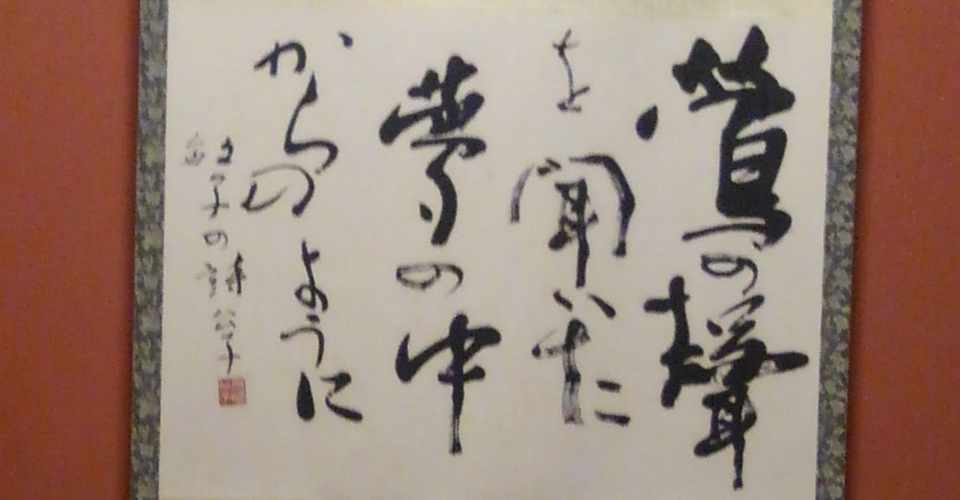 鶯の聲
を聞いた
夢の中
からのように
紅子の詩 公子